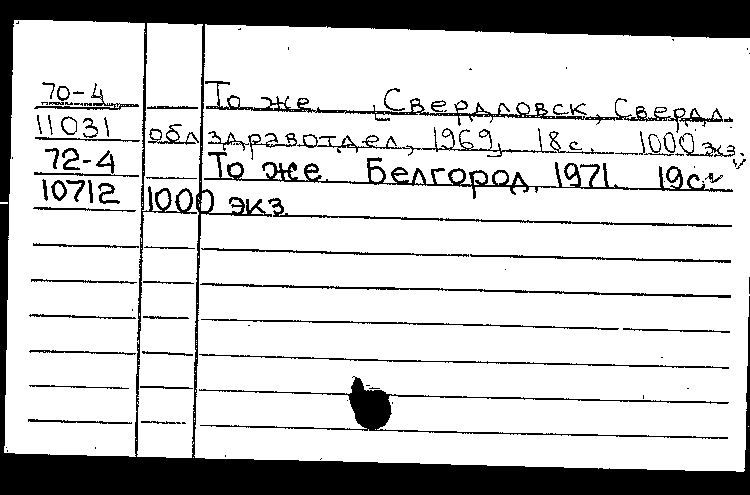 70-4 То же. [Свердловск, Свердл.
11031 облздравотдел, 1969]. 18 с. 1000 экз.
72-4 То же. Белгород, 1971. 19 с
10712 1000 экз.